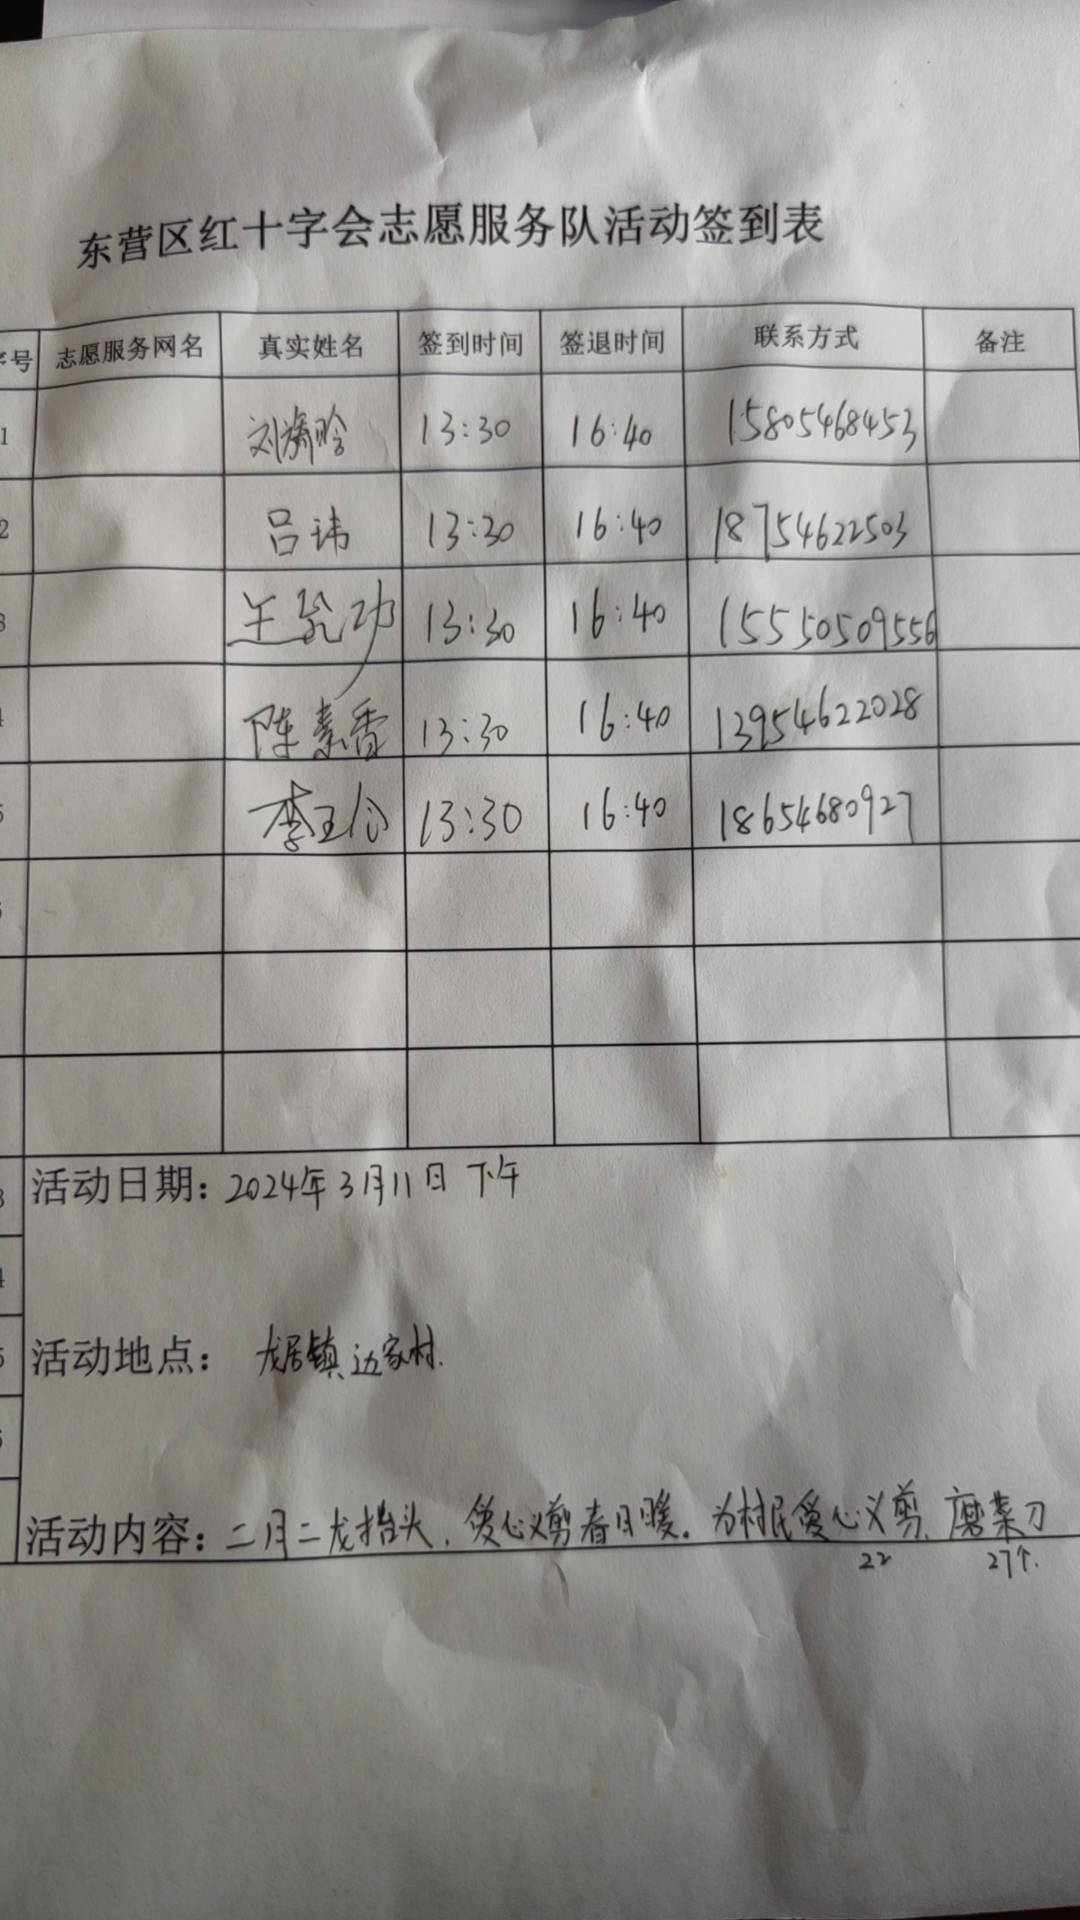 东营区红十字会志愿服务队活动签到表
序号 志愿服务网名 真实姓名 签到时间 签退时间 联系方式 备注
1 刘 13:30 16:40 15805468453
2 吕玮 13:30 16:40 18754622503
3 王 功 13:30 16:40 15550509556
4 陈素香 13:30 16:40 13954622028
5 李玉 13:30 16:40 18654680927
活动日期：2024年3月11日 下午
活动地点： 龙居镇边家村.
活动内容：二月二龙抬头，爱心义剪春日暖。为村民爱心义剪、磨菜刀
22 27个.